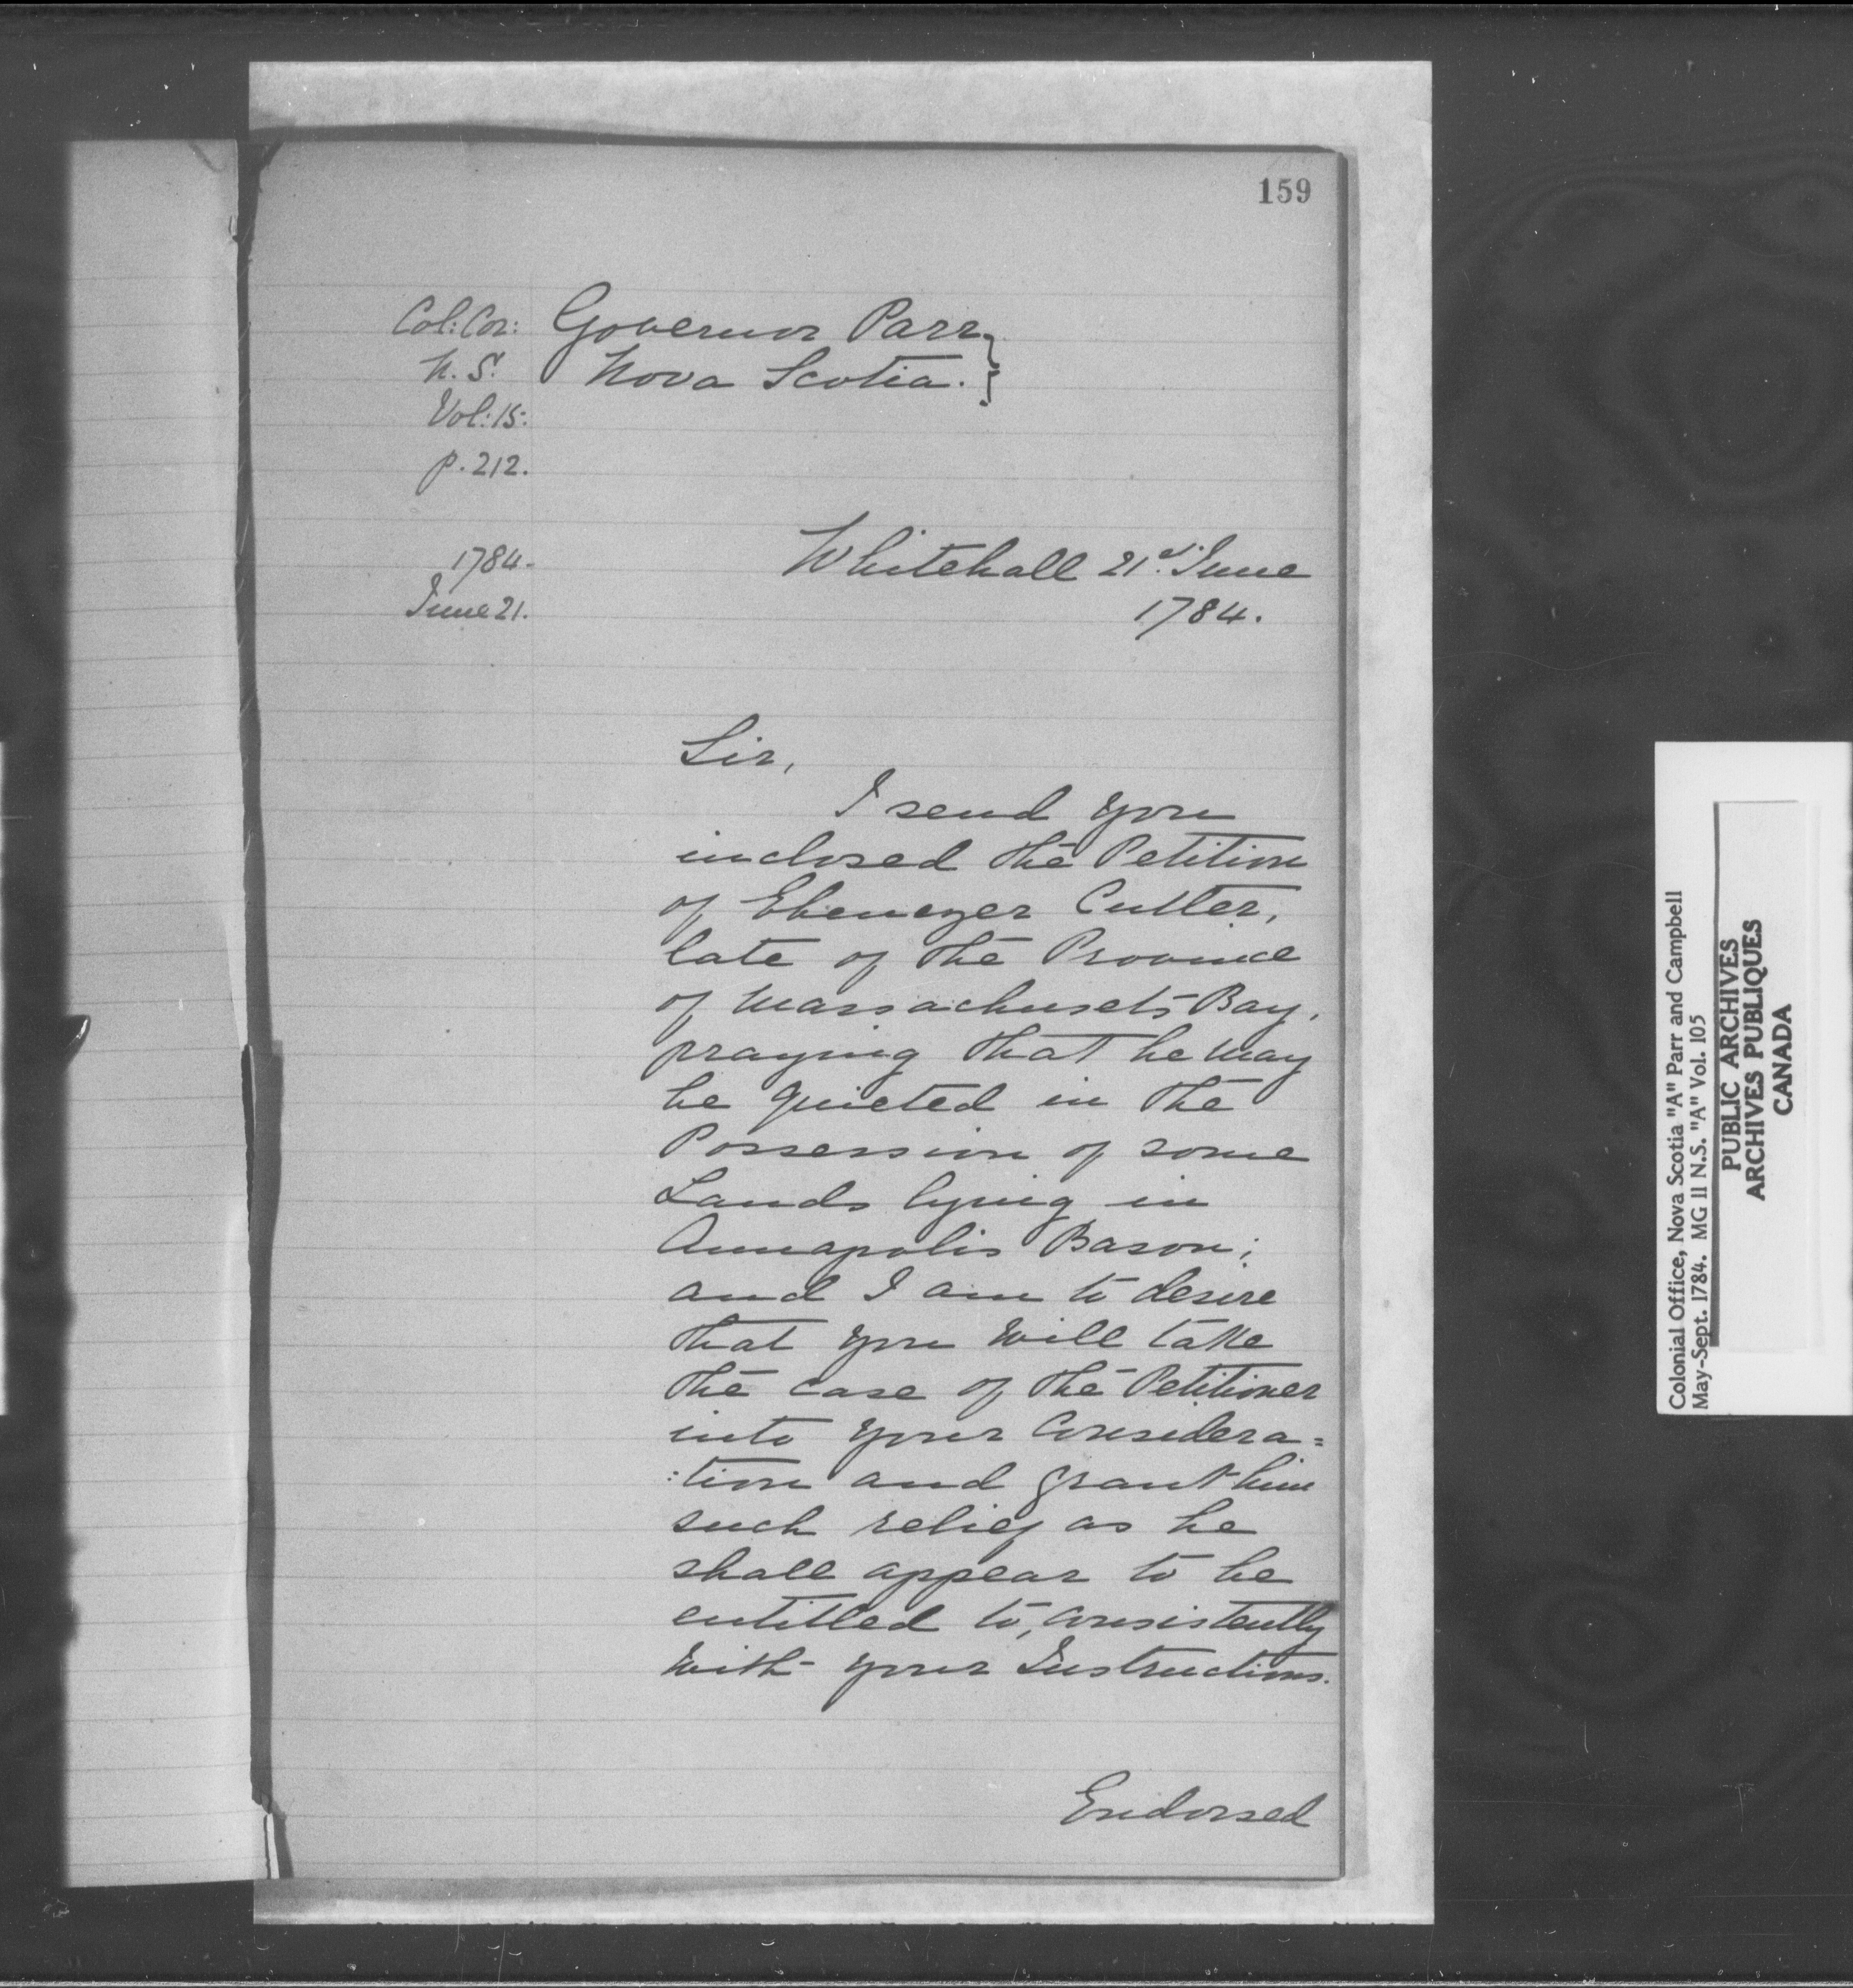 159
Col: Cor:
N. S.
Vol: 15:
p. 212.
Governor Parr
Nova Scotia. }
1784.
June 21.
Whitehall 21.st June
1784.
Sir,
I send you
inclosed the Petition
of Ebenezer Cutler,
late of the Province
of Massachusets Bay,
praying that he may
be quieted in the
Possession of some
Lands lying in
Annapolis Bason;
and I am to desire
that you will take
the case of the Petitioner
into your Considera=
:tion and grant him
such relief as he
shall appear to be
entitled to, consistently
with your Instructions.
Endorsed
Colonial Office, Nova Scotia "A" Parr and Campbell
May-Sept. 1784. MG 11 N.S. "A" Vol. 105
PUBLIC ARCHIVES
ARCHIVES PUBLIQUES
CANADA